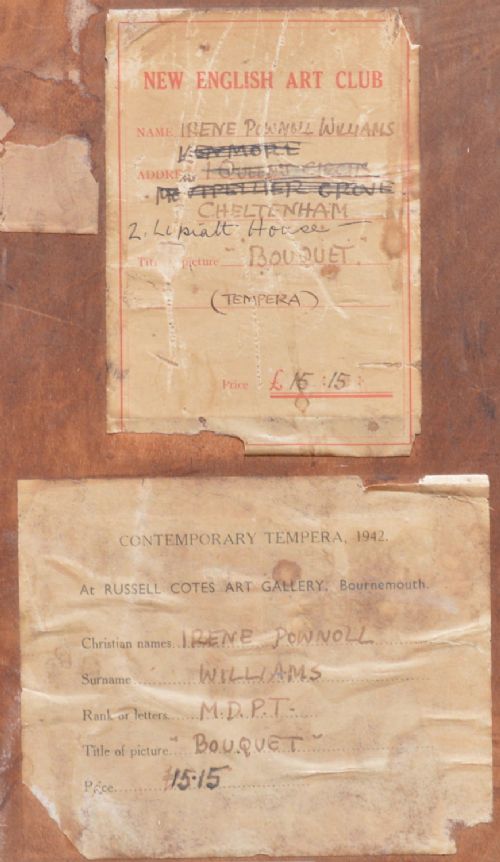 NEW ENGLISH ART CLUB
NAME IRENE POWNOLL WILLIAMS
KENMORE
ADDRESS 1 QUEENS CIRCUS
MONTPELLIER GROVE
CHELTENHAM
2. Lypiatt House
Title of picture "BOUQUET."
(TEMPERA)
Price £ 15 : 15 :
CONTEMPORARY TEMPERA, 1942.
At RUSSELL COTES ART GALLERY, Bournemouth.
Christian names IRENE POWNOLL
Surname WILLIAMS
Rank or letters M.D.P.T.
Title of picture "BOUQUET"
Price £15.15